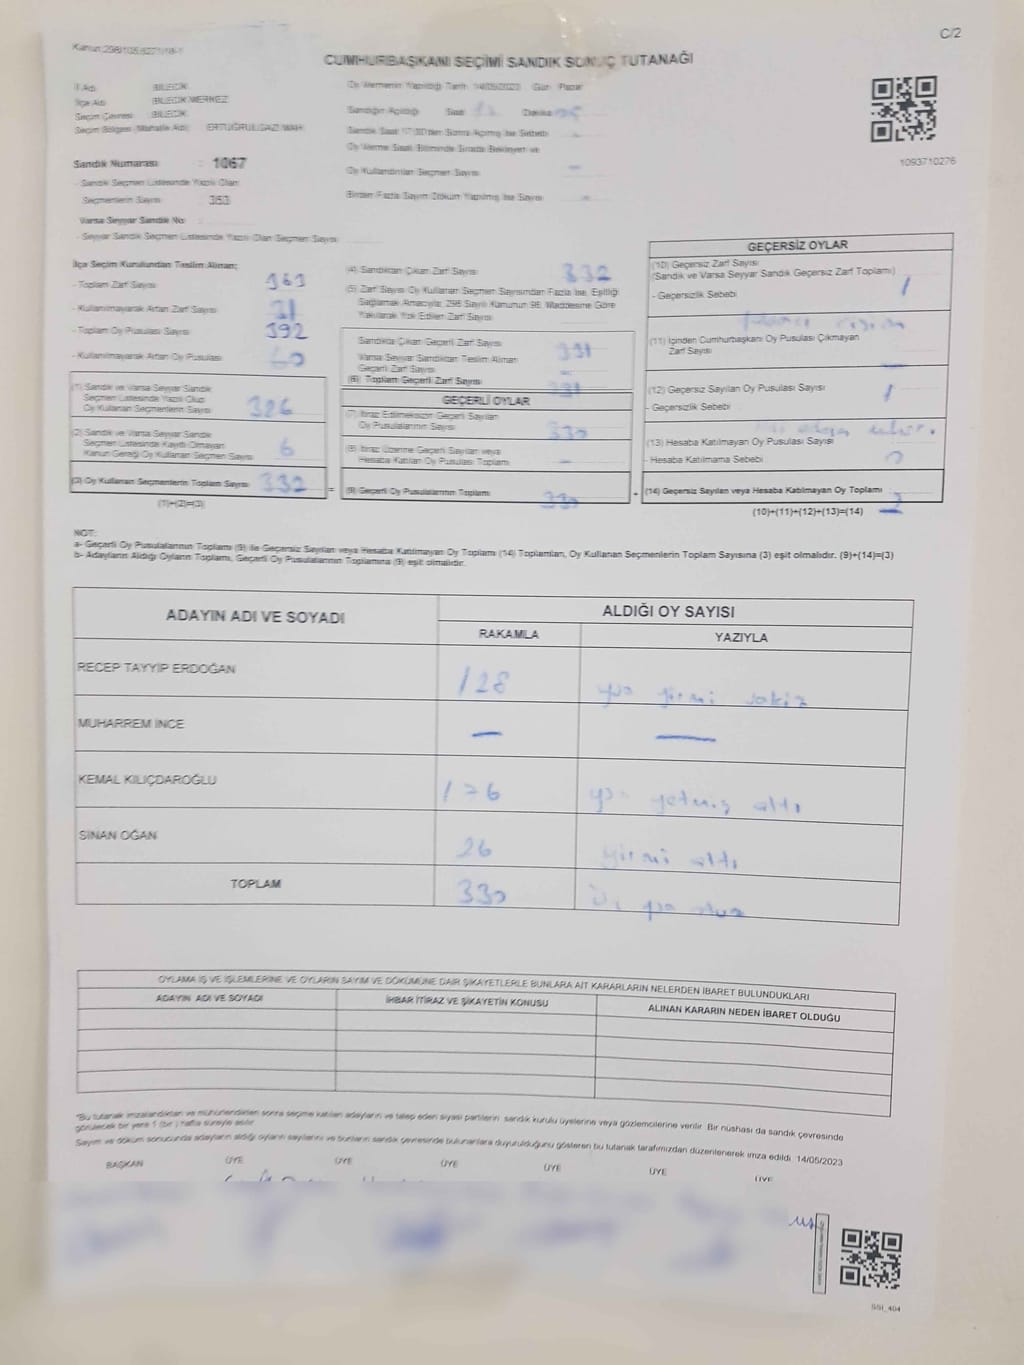 Kanun:298/105,6271/18-1
C/2
CUMHURBAŞKANI SEÇİMİ SANDIK SONUÇ TUTANAĞI
İl Adı BİLECİK
İlçe Adı BİLECİK MERKEZ
Seçim Çevresi BİLECİK
Seçim Bölgesi (Mahalle Adı) ERTUĞRULGAZİ MAH.
Sandık Numarası : 1067
- Sandık Seçmen Listesinde Yazılı Olan
Seçmenlerin Sayısı : 353
Varsa Seyyar Sandık No
- Seyyar Sandık Seçmen Listesinde Yazılı Olan Seçmen Sayısı
Oy Vermenin Yapıldığı Tarih: 14/05/2023 Gün: Pazar
Sandığın Açıldığı Saat Dakika
Sandık Saat 17:00'den Sonra Açılmış İse Sebebi
Oy Verme Saati Bitiminde Sırada Bekleyen ve
Oy Kullandırılan Seçmen Sayısı —
Birden Fazla Sayım Döküm Yapılmış İse Sayısı
1093710276
İlçe Seçim Kurulundan Teslim Alınan;
- Toplam Zarf Sayısı 363
- Kullanılmayarak Artan Zarf Sayısı
- Toplam Oy Pusulası Sayısı 392
- Kullanılmayarak Artan Oy Pusulası 60
(1) Sandık ve Varsa Seyyar Sandık
Seçmen Listesinde Yazılı Olup
Oy Kullanan Seçmenlerin Sayısı 326
(2) Sandık ve Varsa Seyyar Sandık
Seçmen Listesinde Kayıtlı Olmayan
Kanun Gereği Oy Kullanan Seçmen Sayısı 6
(3) Oy Kullanan Seçmenlerin Toplam Sayısı 332
(1)+(2)=(3)
(4) Sandıktan Çıkan Zarf Sayısı 332
(5) Zarf Sayısı Oy Kullanan Seçmen Sayısından Fazla İse, Eşitliği
Sağlamak Amacıyla; 298 Sayılı Kanunun 98. Maddesine Göre
Yakılarak Yok Edilen Zarf Sayısı
Sandıkta Çıkan Geçerli Zarf Sayısı 331
Varsa Seyyar Sandıktan Teslim Alınan
Geçerli Zarf Sayısı —
(6) Toplam Geçerli Zarf Sayısı 331
GEÇERLİ OYLAR
(7) İtiraz Edilmeksizin Geçerli Sayılan
Oy Pusulalarının Sayısı 330
(8) İtiraz Üzerine Geçerli Sayılan veya
Hesaba Katılan Oy Pusulası Toplamı —
= (9) Geçerli Oy Pusulalarının Toplamı 330 +
GEÇERSİZ OYLAR
(10) Geçersiz Zarf Sayısı
(Sandık ve Varsa Seyyar Sandık Geçersiz Zarf Toplamı) 1
- Geçersizlik Sebebi
(11) İçinden Cumhurbaşkanı Oy Pusulası Çıkmayan
Zarf Sayısı —
(12) Geçersiz Sayılan Oy Pusulası Sayısı 1
- Geçersizlik Sebebi
(13) Hesaba Katılmayan Oy Pusulası Sayısı
- Hesaba Katılmama Sebebi
(14) Geçersiz Sayılan veya Hesaba Katılmayan Oy Toplamı 2
(10)+(11)+(12)+(13)=(14)
NOT:
a- Geçerli Oy Pusulalarının Toplamı (9) ile Geçersiz Sayılan veya Hesaba Katılmayan Oy Toplamı (14) Toplamları, Oy Kullanan Seçmenlerin Toplam Sayısına (3) eşit olmalıdır. (9)+(14)=(3)
b- Adayların Aldığı Oyların Toplamı, Geçerli Oy Pusulalarının Toplamına (9) eşit olmalıdır.
ADAYIN ADI VE SOYADI ALDIĞI OY SAYISI
RAKAMLA YAZIYLA
RECEP TAYYİP ERDOĞAN 128 yüz yirmi sekiz
MUHARREM İNCE — —
KEMAL KILIÇDAROĞLU 176 yüz yetmiş altı
SİNAN OĞAN 26 yirmi altı
TOPLAM 330 üç yüz otuz
OYLAMA İŞ VE İŞLEMLERİNE VE OYLARIN SAYIM VE DÖKÜMÜNE DAİR ŞİKAYETLERLE BUNLARA AİT KARARLARIN NELERDEN İBARET BULUNDUKLARI
ADAYIN ADI VE SOYADI İHBAR İTİRAZ VE ŞİKAYETİN KONUSU ALINAN KARARIN NEDEN İBARET OLDUĞU
*Bu tutanak imzalandıktan ve mühürlendikten sonra seçime katılan adayların ve talep eden siyasi partilerin sandık kurulu üyelerine veya gözlemcilerine verilir. Bir nüshası da sandık çevresinde
görülecek bir yere 1 (bir ) hafta süreyle asılır.
Sayım ve döküm sonucunda adayların aldığı oyların sayılarını ve bunların sandık çevresinde bulunanlara duyurulduğunu gösteren bu tutanak tarafımızdan düzenlenerek imza edildi. 14/05/2023
BAŞKAN ÜYE ÜYE ÜYE ÜYE ÜYE ÜYE
SSI_404